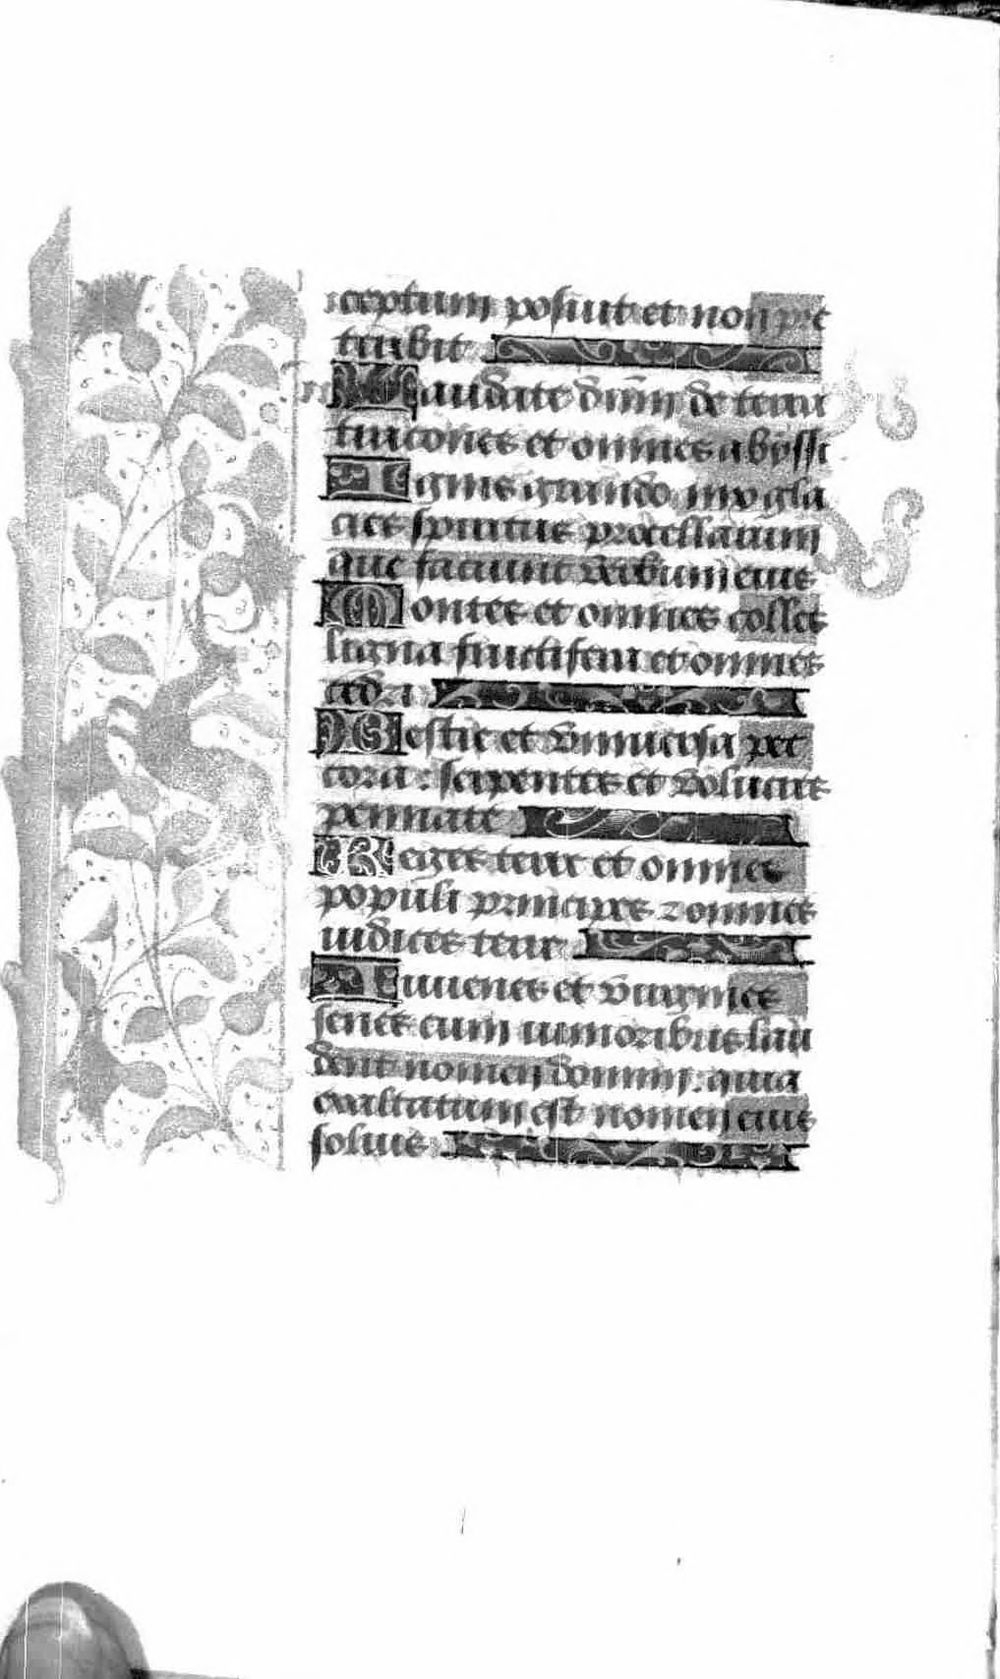 ceptum posuit et non pre
teribit
Laudate dnm de terra
dracones et omnes abyssi
Ignis grando nix gla
cies spiritus procellarum
que faciunt verbum eius
Montes et omnes colles
ligna fructifera et omnes
cedri
Bestie et vniuersa pec
cora: serpentes et volucres
pennate
Reges terre et omnes
populi principes ⁊ omnes
iudices terre
Iuuenes et virgines
senes cum iunioribus lau
dent nomen domini. quia
exaltatum est nomen eius
solius